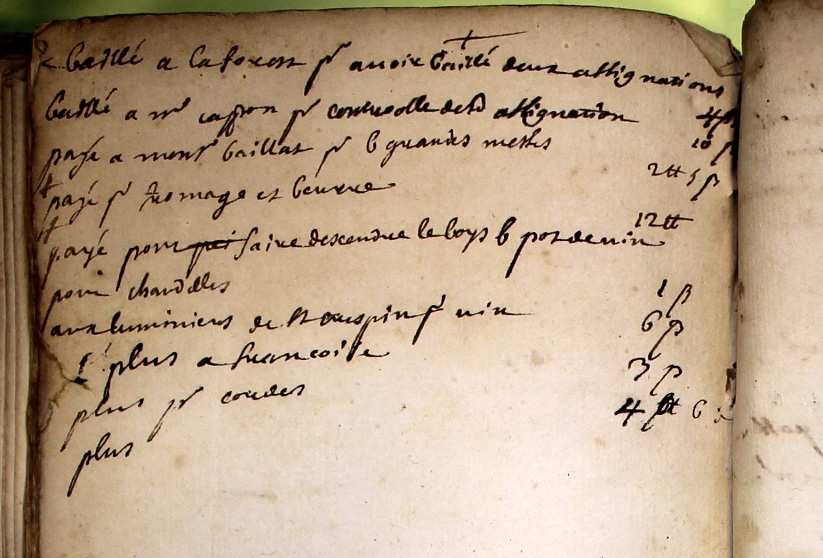 baillé a laforest pr avoir baillé deux assignations
baillé a mr cappon pr controolle desd assignation 4 ß
payé a monsr baillat pr 6 grandes messes 10 ß
payé pr fromage et beurre 2tt 5 ß
payé pour faire descendre le boys 6 pos de vin 12tt
pour chandelles
aux luminiers de st crespin pr vin 1 ß
plus a francoise 6 ß
plus pr cordes 3 ß
plus 4 tt 6